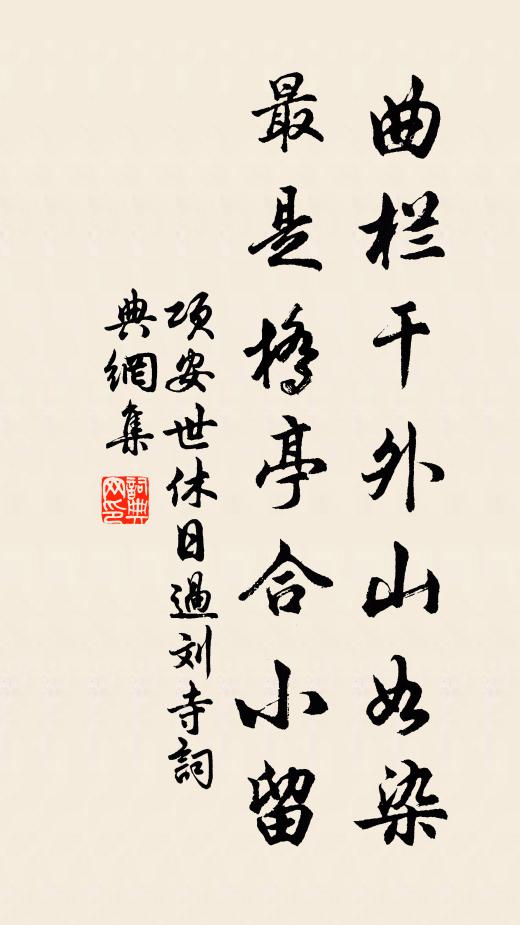 曲栏干外山如染
最是桥亭合小留
项安世休日過刘寺詞
典網集
詞典网印